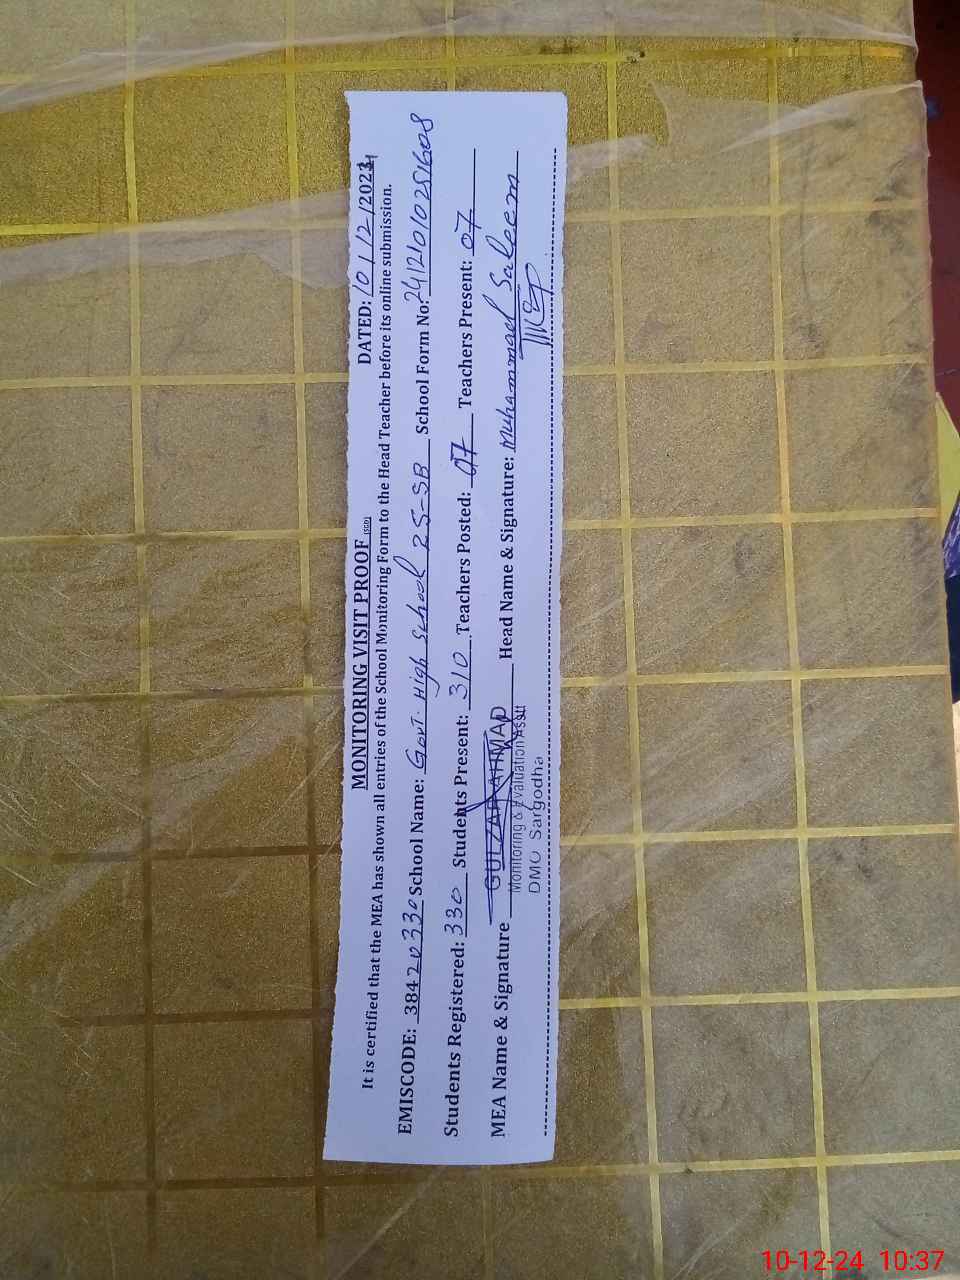 MONITORING VISIT PROOF (SGD) DATED: 10/12/2024
It is certified that the MEA has shown all entries of the School Monitoring Form to the Head Teacher before its online submission.
EMISCODE: 38420330 School Name: Govt. High School 25-SB School Form No: 24121010251608
Students Registered: 330 Students Present: 310 Teachers Posted: 07 Teachers Present: 07
MEA Name & Signature GULZAR AHMAD Head Name & Signature: Muhammad Saleem
Monitoring & Evaluation Asstt
DMO Sargodha
10-12-24 10:37